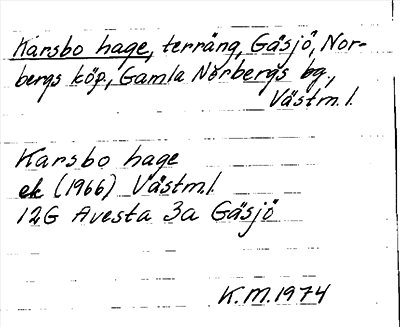 Karsbo hage, terräng, Gäsjö, Nor-
bergs köp, Gamla Norbergs bg.,
Västm.l.
Karsbo hage
ek (1966) Västm.l.
12G Avesta 3a Gäsjö
K.M. 1974